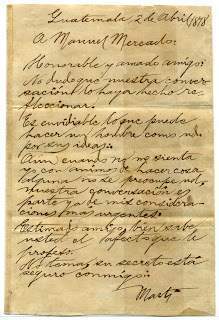 Guatemala, 2 de Abril/1878
A Manuel Mercado:
Honorable y amado amigo:
No dudo que nuestra conver-
sación lo haya hecho re-
flexionar.
Es envidiable lo que puede
hacer un hombre como ud.
por sus ideas.
Aún cuando no me sienta
yo con animo de hacer cosa
alguna no se preocupe
nuestra conversación es
parte ya de mis considera
ciones mas urgentes.
Estimado amigo, bien sabe
usted el afecto que le
profeso.
su secreto está
seguro conmigo.
Martí